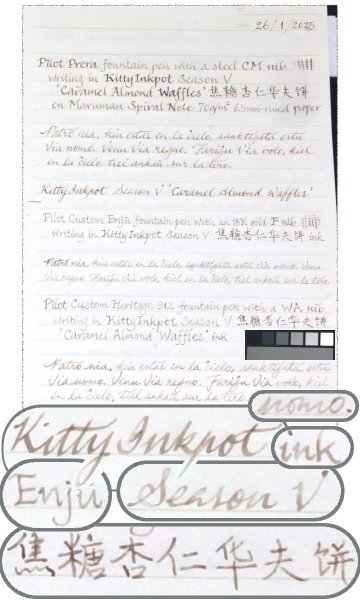 26/1/2025
Pilot Prera fountain pen with a steel CM nib
writing in KittyInkpot Season V
'Caramel Almond Waffles' 焦糖杏仁华夫饼
on Maruman Spiral Note 70g/m² 6.5mm-ruled paper
Patro nia, kiu estas en la ĉielo, sanktigata estu
Via nomo. Venu Via regno. Fariĝu Via volo, kiel
en la ĉielo, tiel ankaŭ sur la tero.
KittyInkpot Season V 'Caramel Almond Waffles'
Pilot Custom Enjū fountain pen with an 18K gold F nib
writing in KittyInkpot Season V 焦糖杏仁华夫饼 ink
Patro nia, kiu estas en la ĉielo, sanktigata estu Via nomo. Venu
Via regno. Fariĝu Via volo, kiel en la ĉielo, tiel ankaŭ sur la tero.
Pilot Custom Heritage 912 fountain pen with a WA nib
writing in KittyInkpot Season V 焦糖杏仁华夫饼
'Caramel Almond Waffles' ink
Patro nia, kiu estas en la ĉielo, sanktigata estu
Via nomo. Venu Via regno. Fariĝu Via volo, kiel
en la ĉielo, tiel ankaŭ sur la tero.
nomo.
KittyInkpot ink
Enjū Season V
焦糖杏仁华夫饼